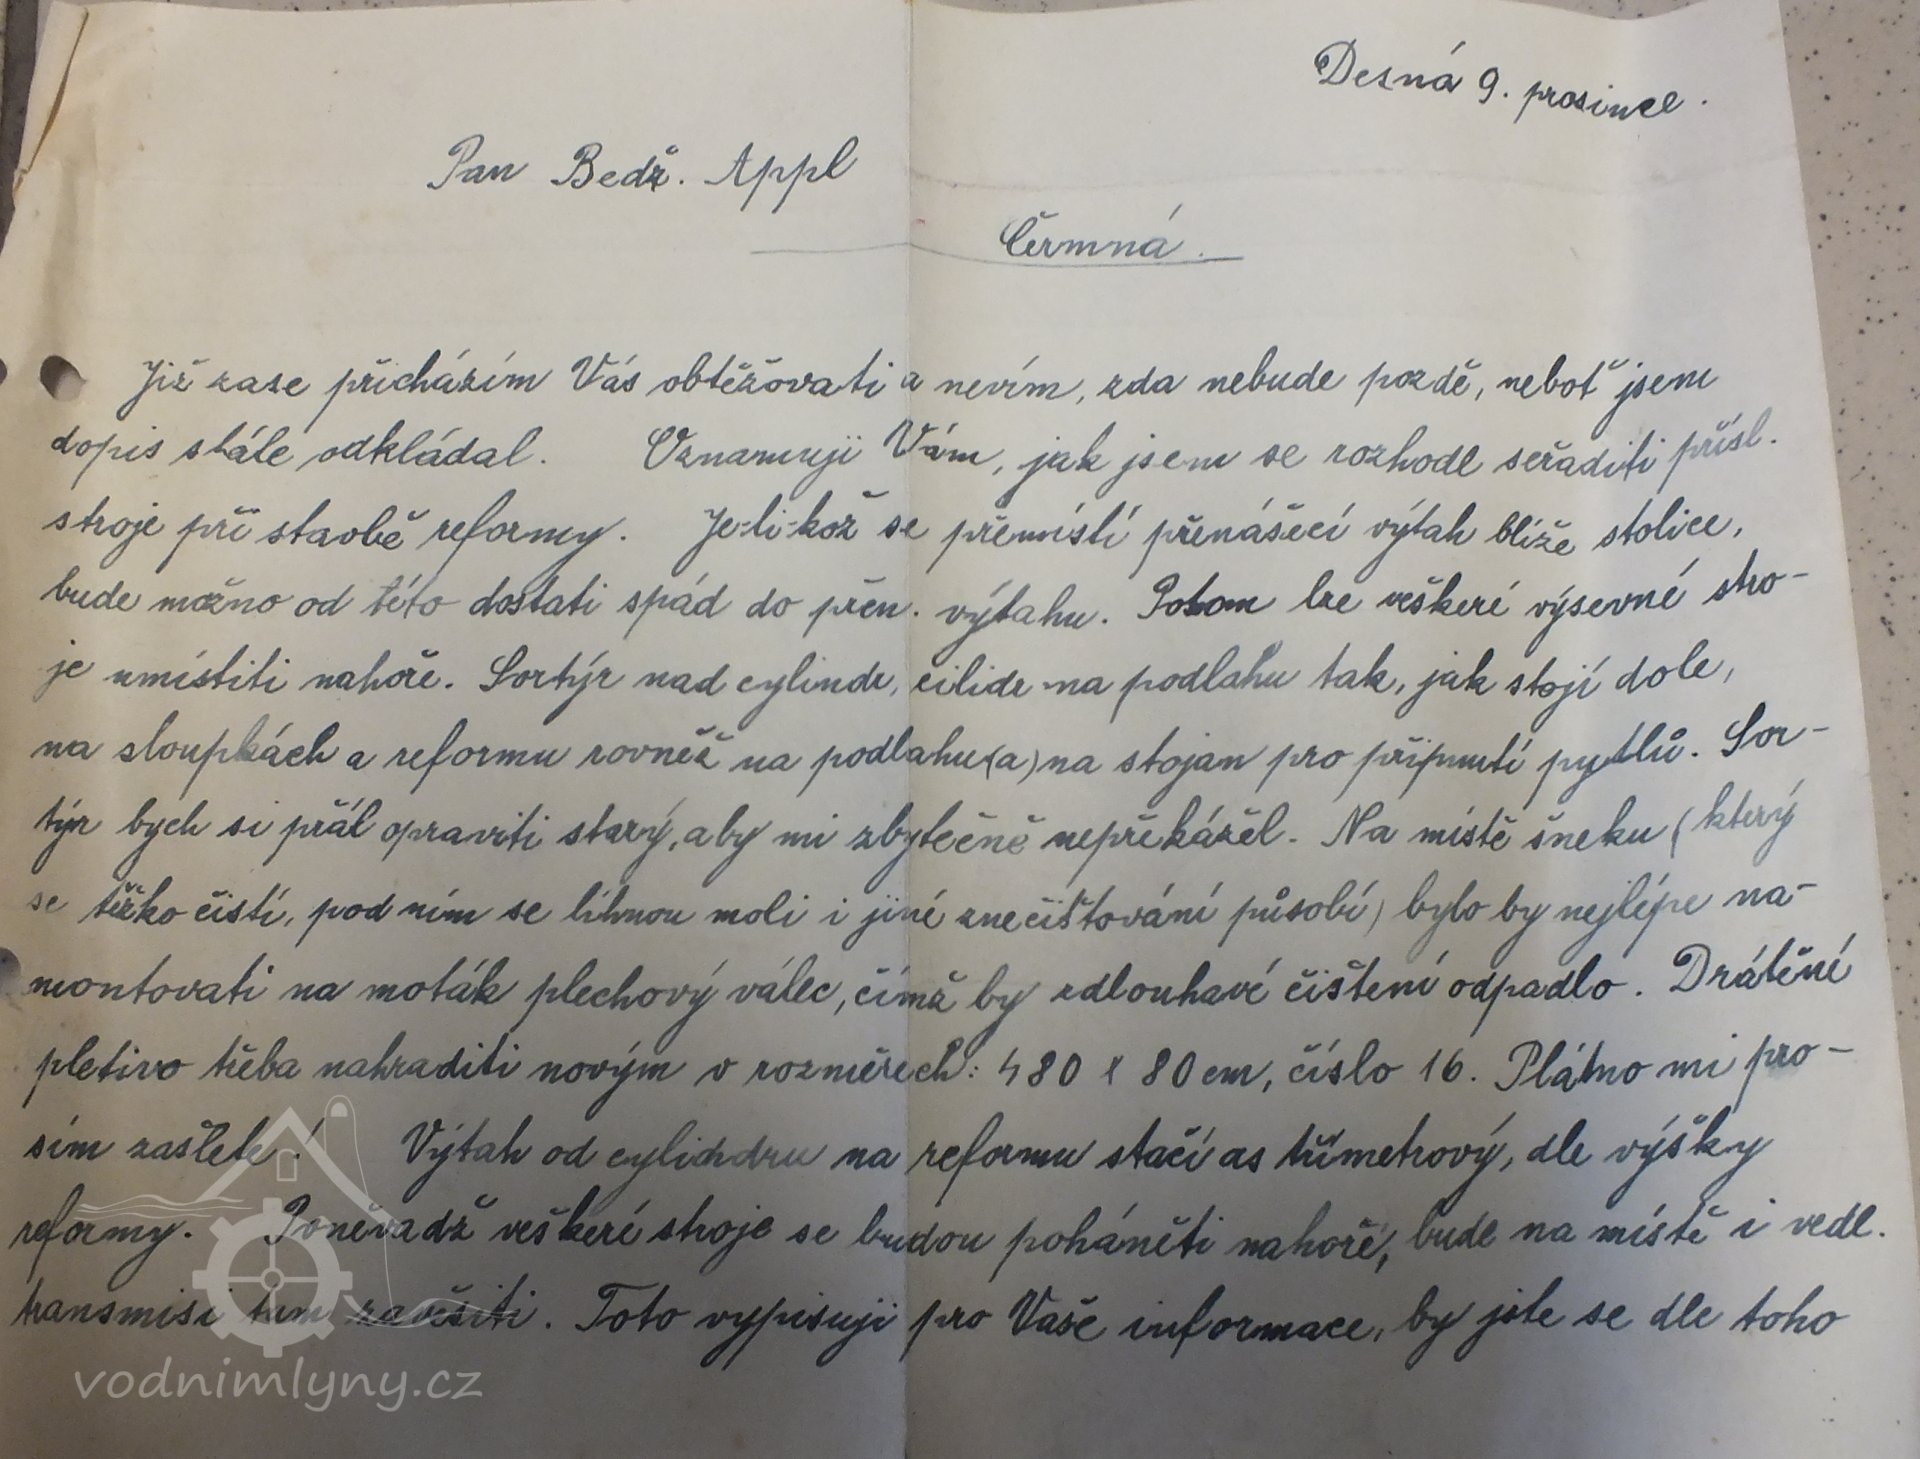 Desná 9. prosince.
Pan Bedř. Appl
Čermná.
Již zase přicházím Vás obtěžovati a nevím, zda nebude pozdě, neboť jsem
dopis stále odkládal. Oznamuji Vám, jak jsem se rozhodl seřaditi přísl.
stroje při stavbě reformy. Je-li-kož se přemístí přenášecí výtah blíže stolice,
bude možno od této dostati spád do přen. výtahu. Potom lze veškeré výsevné stro-
je umístiti nahoře. Sortýr nad cylindr, cilidr na podlahu tak, jak stojí dole,
na sloupkách a reformu rovněž na podlahu (a) na stojan pro připnutí pytlů. Sor-
týr bych si přál opraviti starý, aby mi zbytečně nepřekážel. Na místě šneku (který
se těžko čistí, pod ním se líhnou moli i jiné znečišťování působí) bylo by nejlépe na-
montovati na moták plechový válec, čímž by zdlouhavé čištení odpadlo. Drátěné
pletivo třeba nahraditi novým v rozměrech: 480 x 80 cm, číslo 16. Plátno mi pro-
sím zašlete! Výtah od cylindru na reformu stačí as třímetrový, dle výšky
reformy. Poněvadž veškeré stroje se budou poháněti nahoře, bude na místě i vedl.
transmisi tam zavěsiti. Toto vypisuji pro Vaše informace, by jste se dle toho
vodnimlyny.cz